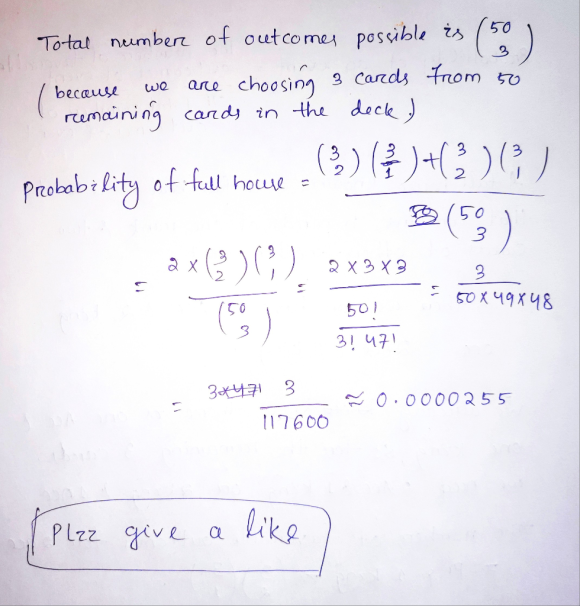 Total number of outcomes possible is (50 3)
(because we are choosing 3 cards from 50
remaining cards in the deck)
Probability of full house = ((3 2)(3 1)+(3 2)(3 1))/(50 3)
= (2 x (3 2)(3 1))/(50 3) = (2 x 3 x 3)/(50!/(3! 47!)) = 3/(50 x 49 x 48)
= 3/117600 ≈ 0.0000255
Plzz give a like